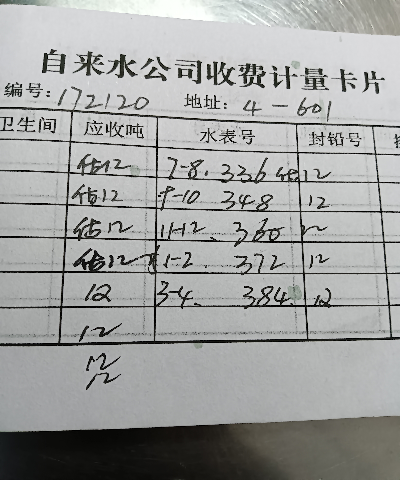 自来水公司收费计量卡片
编号:172120 地址:4-601
卫生间 应收吨 水表号 封铅号
估12 7-8. 336 估12
估12 9-10 348 12
估12 11-12. 360 12
估12 1-2. 372 12
12 3-4. 384. 12
12
12
12